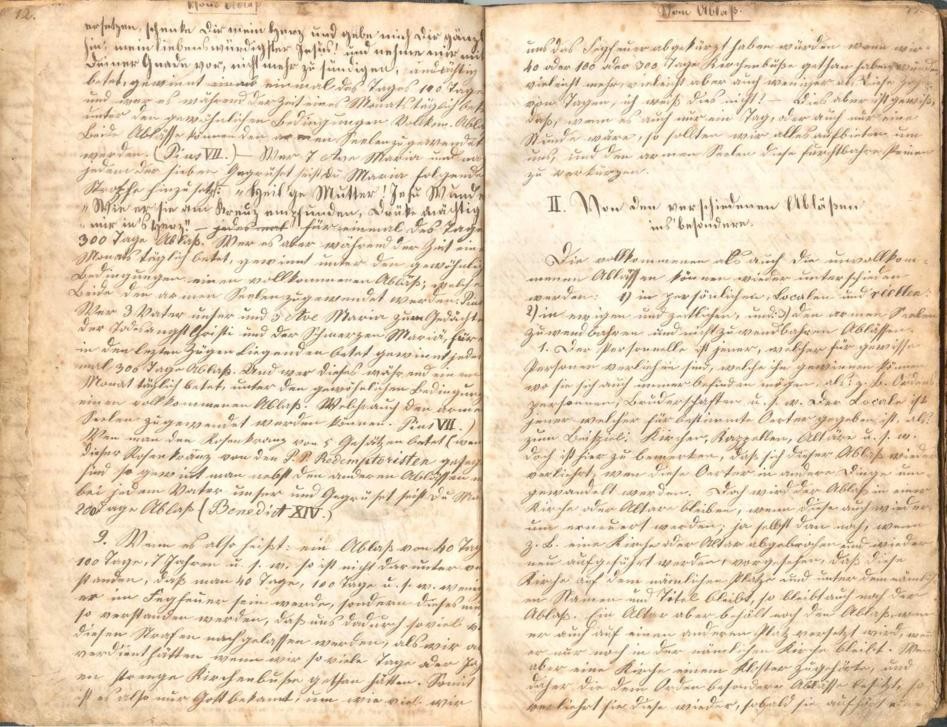 12.
Vom Ablaß
ersetzen, schenke Dir mein Herz und gebe mich Dir gänzl
hin, mein liebenswürdigster Jesus! und nehme mir mit
Deiner Gnade vor, nicht mehr zu sündigen,
betet, gewinnt einmal des Tages 100 Tage
und wer es während der Zeit eines Monats täglich bet
unter den gewöhnlichen Bedingungen vollkom. Abla
Beide Ablässe können den armen Seelen zugewendet
werden. (Pius VII.) – Wer 7 Ave Maria und na
jedem der sieben Gegrüßt seist du Maria folgende
Strophe hinzusetzt: „Heil'ge Mutter! Jesu Wund
„Wie er sie am Kreuz empfunden, Drücke mächtig
„mir in's Herz. – für einmal des Tags
300 Tage Ablaß. Wer es aber während der Zeit ein
Monats täglich betet, gewinnt unter den gewöhnlich
Bedingungen einen vollkommenen Ablaß; welche
Beide den armen Seelen zugewendet werden. Pius
Wer 3 Vater unser und 3 Ave Maria zum Gedächt
der Todesangst Christi und der Schmerzen Mariä, für
in den letzten Zügen liegenden betet gewinnt jedes
mal 300 Tage Ablaß. Und wer dieses während ein
Monat täglich betet, unter den gewöhnlichen Bedingung
einen vollkommenen Ablaß. Welche auch den arme
Seelen zugewendet werden können. Pius VII.)
Wen man den Rosenkranz von 5 Gesätzen betet (wen
dieser Rosenkranz von den P. P. Redemptoristen geweih
sind so gewint man nebst den anderen Ablässen n
bei jedem Vater unser und Gegrüßt seist du Ma
200 Tage Ablaß (Benedict XIV.)
2. Wenn es also heißt: ein Ablaß von 40 Tag
100 Tage, 7 Jahren u. s. w. so ist nicht darunter ve
standen, daß man 40 Tage, 100 Tage u. s. w. weni
er im Fegfeuer sein werde, sondern dieses mu
so verstanden werden, daß uns dadurch so viel v
diesen Strafen nachgelassen werden, als wir a
verdient hätten wenn wir so viele Tage oder Ja
en strenge Kirchenbuße gethan hätten. Somit
ist es also nur Gott bekannt, um wie viel wir
Vom Ablaß.
uns das Fegfeuer abgekürzt haben würden wenn wir
40 oder 100 oder 300 Tage Kirchenbuße gethan haben würden
vieleicht mehr, vieleicht aber auch weniger an
von Tagen, ich weiß dies nicht! – Dies aber ist gewiß,
daß, wenn es auch nur ein Tag, oder auch nur eine
Stunde wäre, so sollten wir alles aufbieten um
uns, und den armen Seelen diese furchtbahre Peinen
zu verkürzen.
II. Von den verschiedenen Abläßen
ins besondere.
Die vollkommenen als auch die unvollkom-
menen Ablässen können wieder unterschieden
werden: 1) in persönlichen, Localen und reellen:
2) in ewigen und zeitlichen, und: 3) den armen Seelen
zuwendbahren und nicht zuwendbahren Ablässe.
1. Der Personnelle ist jener, welcher für gewisse
Personen verliehen sind, welche ihn gewinnen könn
wo sie sich auch immer befinden mögen, als: z. B. Ordens
personnen, Bruderschaften u. s. w. Der Locale ist
jener welcher für bestimte Orter gegeben ist, als
zum Beispiel: Kirchen, Kappellen, Altäre u. s. w.
doch ist hier zu bemerken, daß sich dieser Ablaß wieder
verliehrt, wen diese Orter in andere Dinge um
gewandelt werden. Doch wird der Ablaß in einer
Kirche oder Altare bleiben, wenn diese auch wieder
um erneuert werden; ja selbst dan noch, wenn
z. B. eine Kirche oder Altar abgebrochen und wieder
neu aufgeführt werden, vorgesehen, daß diese
Kirche auf dem nämlichen Platze und unter dem nämlich
en Namen und Titel bleibt, so bleibt auch noch der
Ablaß. Ein Altar aber behält noch den Ablaß, wen
er auch auf einen anderen Platz versetzt wird, wen
er nur noch in der nämlichen Kirche bleibt. Wen
aber eine Kirche einem Kloster zugehörte, und
daher die dem Orden besondere Ablässe besitzt, so
verliehrt sie diese wieder, sobald sie aufhört